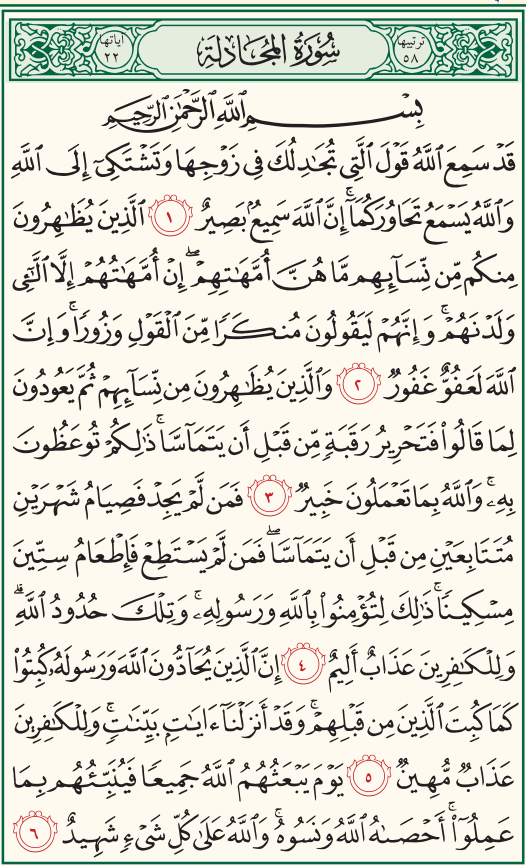 ترتيبها ٥٨ سُورَةُ المُجَادلة آياتها ٢٢
بِسْمِ ٱللَّهِ ٱلرَّحْمَٰنِ ٱلرَّحِيمِ
قَدْ سَمِعَ ٱللَّهُ قَوْلَ ٱلَّتِي تُجَٰدِلُكَ فِي زَوْجِهَا وَتَشْتَكِيٓ إِلَى ٱللَّهِ
وَٱللَّهُ يَسْمَعُ تَحَاوُرَكُمَآۚ إِنَّ ٱللَّهَ سَمِيعُۢ بَصِيرٌ ١ ٱلَّذِينَ يُظَٰهِرُونَ
مِنكُم مِّن نِّسَآئِهِم مَّا هُنَّ أُمَّهَٰتِهِمْۖ إِنْ أُمَّهَٰتُهُمْ إِلَّا ٱلَّٰٓـِٔي
وَلَدْنَهُمْۚ وَإِنَّهُمْ لَيَقُولُونَ مُنكَرٗا مِّنَ ٱلْقَوْلِ وَزُورٗاۚ وَإِنَّ
ٱللَّهَ لَعَفُوٌّ غَفُورٌ ٢ وَٱلَّذِينَ يُظَٰهِرُونَ مِن نِّسَآئِهِمْ ثُمَّ يَعُودُونَ
لِمَا قَالُوا۟ فَتَحْرِيرُ رَقَبَةٖ مِّن قَبْلِ أَن يَتَمَآسَّاۚ ذَٰلِكُمْ تُوعَظُونَ
بِهِۦۚ وَٱللَّهُ بِمَا تَعْمَلُونَ خَبِيرٌ ٣ فَمَن لَّمْ يَجِدْ فَصِيَامُ شَهْرَيْنِ
مُتَتَابِعَيْنِ مِن قَبْلِ أَن يَتَمَآسَّاۖ فَمَن لَّمْ يَسْتَطِعْ فَإِطْعَامُ سِتِّينَ
مِسْكِينٗاۚ ذَٰلِكَ لِتُؤْمِنُوا۟ بِٱللَّهِ وَرَسُولِهِۦۚ وَتِلْكَ حُدُودُ ٱللَّهِۗ
وَلِلْكَٰفِرِينَ عَذَابٌ أَلِيمٌ ٤ إِنَّ ٱلَّذِينَ يُحَآدُّونَ ٱللَّهَ وَرَسُولَهُۥ كُبِتُوا۟
كَمَا كُبِتَ ٱلَّذِينَ مِن قَبْلِهِمْۚ وَقَدْ أَنزَلْنَآ ءَايَٰتِۭ بَيِّنَٰتٖۚ وَلِلْكَٰفِرِينَ
عَذَابٌ مُّهِينٌ ٥ يَوْمَ يَبْعَثُهُمُ ٱللَّهُ جَمِيعٗا فَيُنَبِّئُهُم بِمَا
عَمِلُوٓا۟ۚ أَحْصَىٰهُ ٱللَّهُ وَنَسُوهُۚ وَٱللَّهُ عَلَىٰ كُلِّ شَيْءٖ شَهِيدٌ ٦